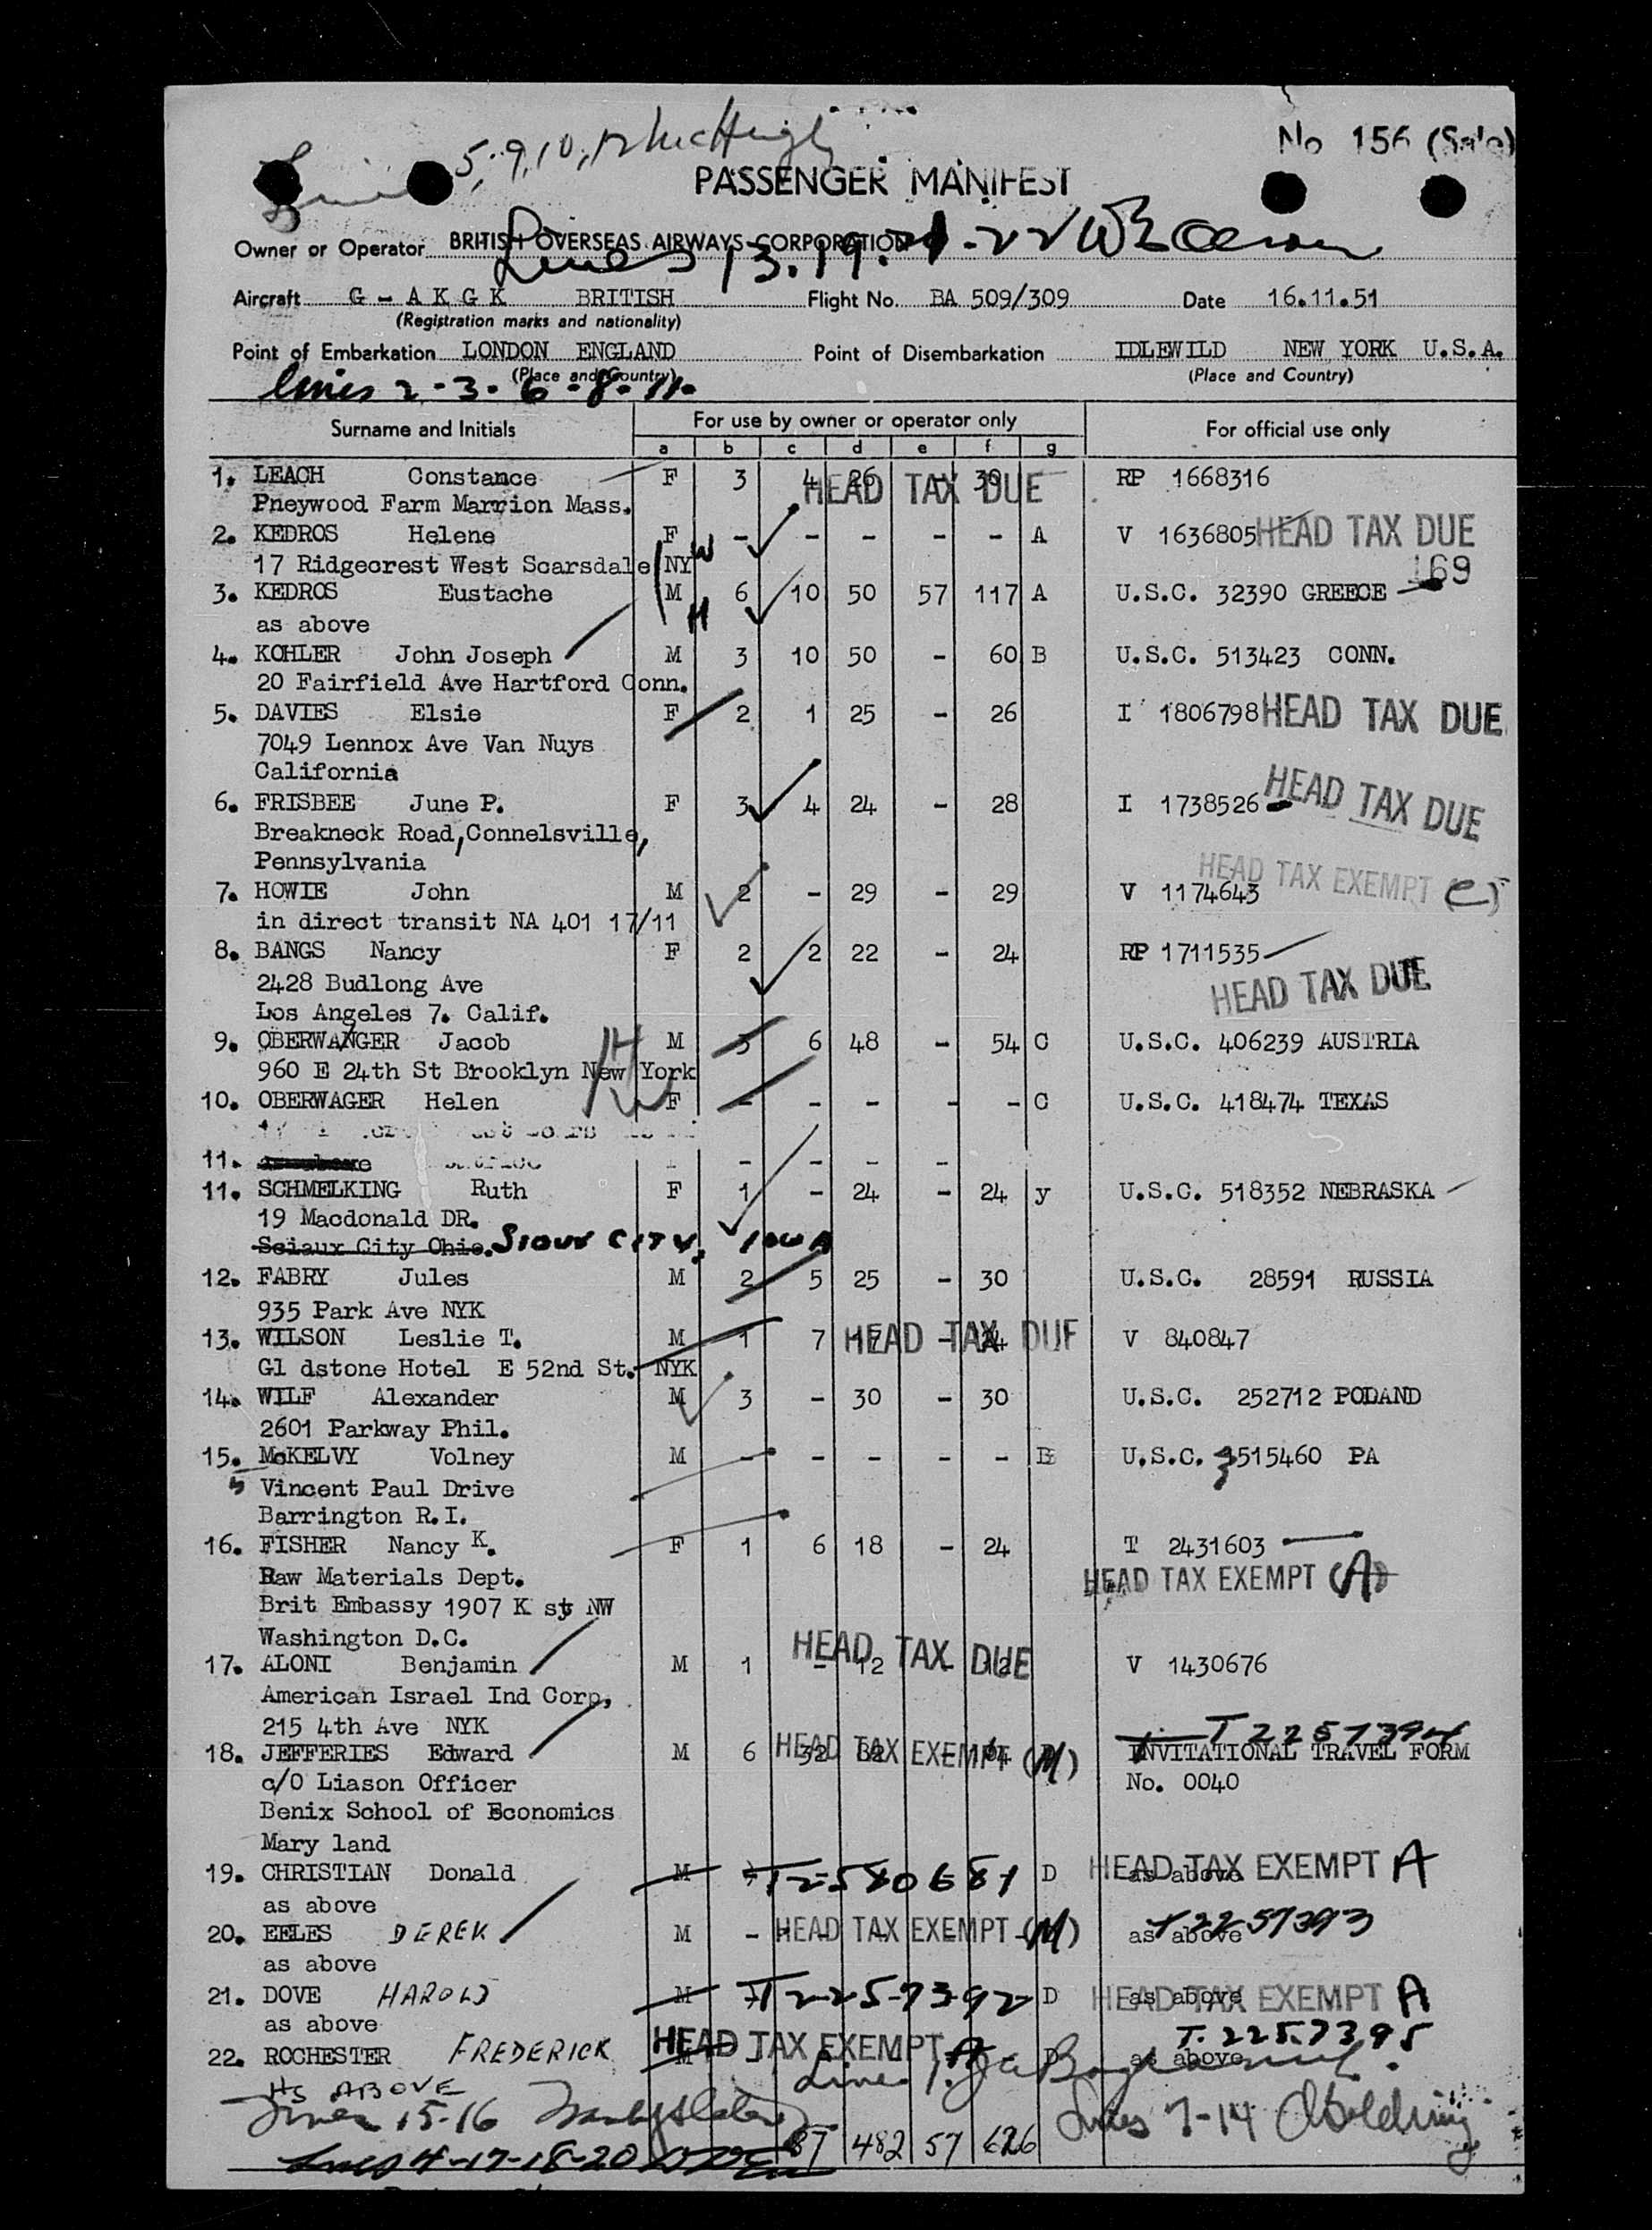 No 156 (Sale)
5, 9, 10, 12
PASSENGER MANIFEST
Owner or Operator BRITISH OVERSEAS AIRWAYS CORPORATION
Lines 13. 19. 21-22
Aircraft G - A K G K BRITISH Flight No. BA 509/309 Date 16.11.51
(Registration marks and nationality)
Point of Embarkation LONDON ENGLAND Point of Disembarkation IDLEWILD NEW YORK U.S.A.
(Place and Country) (Place and Country)
Lines 2-3-6-8-11-
Surname and Initials For use by owner or operator only For official use only
a b c d e f g
1. LEACH Constance F 3 4 26 - 30 HEAD TAX DUE RP 1668316
Pneywood Farm Marrion Mass.
2. KEDROS Helene F - - - - - A V 1636805 HEAD TAX DUE
17 Ridgecrest West Scarsdale NY W 169
3. KEDROS Eustache M 6 10 50 57 117 A U.S.C. 32390 GREECE
as above H
4. KOHLER John Joseph M 3 10 50 - 60 B U.S.C. 513423 CONN.
20 Fairfield Ave Hartford Conn.
5. DAVIES Elsie F 2 1 25 - 26 I 1806798 HEAD TAX DUE
7049 Lennox Ave Van Nuys
California
6. FRISBEE June P. F 3 4 24 - 28 I 1738526 HEAD TAX DUE
Breakneck Road, Connelsville,
Pennsylvania
HEAD TAX EXEMPT
7. HOWIE John M 2 - 29 - 29 V 1174643
in direct transit NA 401 17/11
8. BANGS Nancy F 2 2 22 - 24 RP 1711535
2428 Budlong Ave HEAD TAX DUE
Los Angeles 7. Calif.
9. OBERWANGER Jacob H M 3 6 48 - 54 C U.S.C. 406239 AUSTRIA
960 E 24th St Brooklyn New York
10. OBERWAGER Helen W F - - - - - C U.S.C. 418474 TEXAS
11. - - - -
11. SCHMELKING Ruth F 1 - 24 - 24 y U.S.C. 518352 NEBRASKA
19 Macdonald DR.
Sciaux City Ohio. SIOUX CITY, IOWA
12. FABRY Jules M 2 5 25 - 30 U.S.C. 28591 RUSSIA
935 Park Ave NYK
13. WILSON Leslie T. M 1 7 17 - 24 HEAD TAX DUE V 840847
Gl dstone Hotel E 52nd St. NYK
14. WILF Alexander M 3 - 30 - 30 U.S.C. 252712 POLAND
2601 Parkway Phil.
15. McKELVY Volney M - - - - - B U.S.C. 515460 PA
5 Vincent Paul Drive
Barrington R.I.
16. FISHER Nancy K. F 1 6 18 - 24 T 2431603
Raw Materials Dept. HEAD TAX EXEMPT (A)
Brit Embassy 1907 K st NW
Washington D.C. HEAD TAX DUE
17. ALONI Benjamin M 1 - 12 - 12 V 1430676
American Israel Ind Corp,
215 4th Ave NYK T 2257394
18. JEFFERIES Edward M 6 32 32 - 64 HEAD TAX EXEMPT (M) INVITATIONAL TRAVEL FORM
c/O Liason Officer No. 0040
Benix School of Economics
Mary land
19. CHRISTIAN Donald M T2580681 D HEAD TAX EXEMPT A as above
as above
20. EELES DEREK M - HEAD TAX EXEMPT (M) as above T2257393
as above
21. DOVE HAROLD M T2257392 D HEAD TAX EXEMPT A as above
as above T. 2257395
22. ROCHESTER FREDERICK M HEAD TAX EXEMPT A D as above
AS ABOVE Line 1.
Lines 15-16 Lines 7-14
Lines 4-17-18-20 87 482 57 626